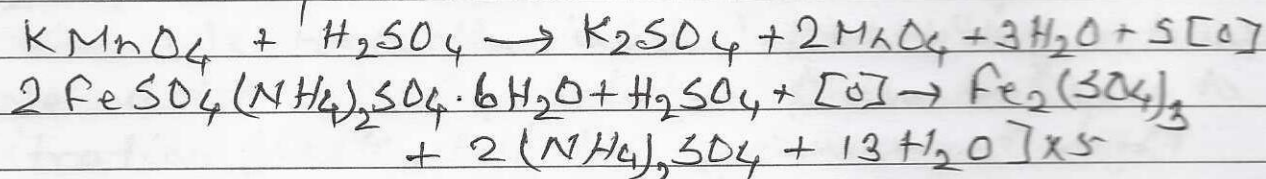 KMnO4 + H2SO4 → K2SO4 + 2MnO4 + 3H2O + 5[O]
2FeSO4(NH4)2SO4·6H2O + H2SO4 + [O] → Fe2(SO4)3
+ 2(NH4)2SO4 + 13H2O]x5